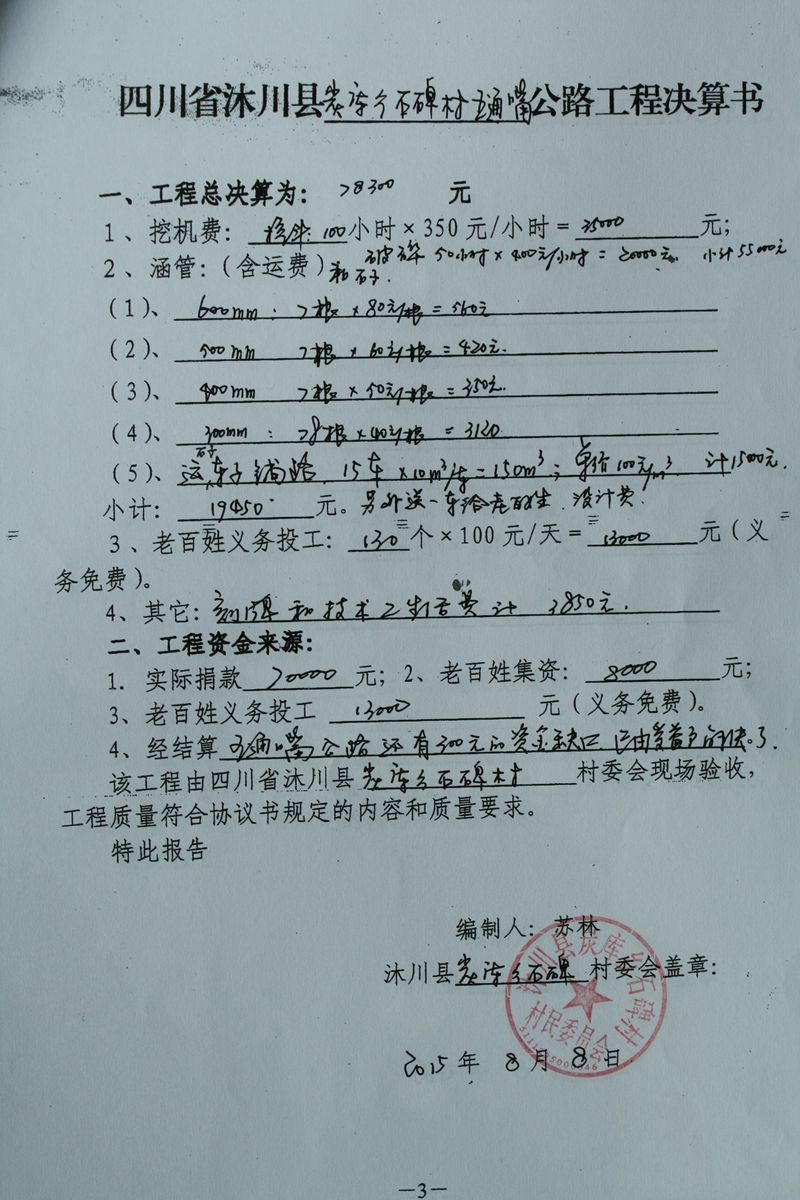 四川省沐川县炭库乡石碑村通嘴公路工程决算书
一、工程总决算为: 78300 元
1、挖机费: 挖机: 100小时×350元/小时=35000 元;
破碎 50小时×400元/小时=20000元. 小计55000元
2、涵管:(含运费)和石子.
(1)、 600mm: 7根×80元/根=560元
(2)、 500mm 7根×60元/根=420元.
(3)、 400mm 7根×50元/根=350元.
(4)、 300mm: 78根×40元/根=3120
(5)、 运石子铺路 15车×10m³/车=150m³; 单价100元/m³ 计15000元.
小计: 19450 元。另外送一车给老百姓.没计费!
3、老百姓义务投工: 130个×100元/天=13000 元(义
务免费)。
4、其它: 刻牌和技术工生活费计 3850元.
二、工程资金来源:
1. 实际捐款 70000 元; 2、老百姓集资: 8000 元;
3、老百姓义务投工 13000 元(义务免费)。
4、经结算 通嘴公路还有300元的资金缺口 已由
该工程由四川省沐川县炭库乡石碑村 村委会现场验收,
工程质量符合协议书规定的内容和质量要求。
特此报告
编制人: 苏林
沐川县炭库乡石碑 村委会盖章:
沐川县炭库乡石碑村
村民委员会
2015年 8月 8日
—3—